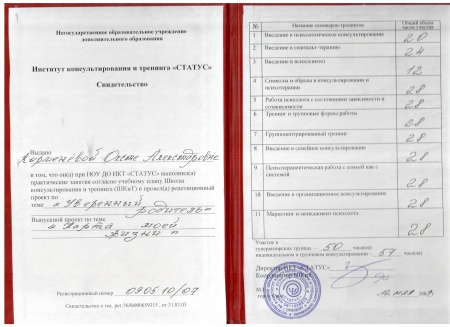 Негосударственное образовательное учреждение
дополнительного образования
Институт консультирования и тренинга «СТАТУС»
Свидетельство
Выдано
Оксане Александровне
в том, что он(а) при НОУ ДО ИКТ «СТАТУС» выполнил(а)
практические занятия согласно учебному плану Школы
консультирования и тренинга (ШКиТ) и провел(а) репетиционный
проект по
теме «Уверенный
Водитель»
Выпускной проект по теме
«Карта моей
Жизни»
Регистрационный номер 0905.10/07
Свидетельство о гос. рег. 
от 31.03.03
№ Название семинаров-тренингов Общий объем часов участия
1 Введение в психологическое консультирование 20
2 Введение в гештальт-терапию 24
3 Введение в психосинтез 12
4 Символы и образы в консультировании и
психотерапии 28
5 Работа психолога с состояниями зависимости и
созависимости 28
6 Тренинг и групповые формы работы 28
7 Группоцентрированный тренинг 28
8 Введение в семейное консультирование 28
9 Психотерапевтическая работа с семьей как с
системой 28
10 Введение в организационное консультирование 28
11 Маркетинг и менеджмент психолога 28
Участие в
супервизорских группах – 50 часа(ов)
индивидуальном и групповом консультировании – 57 час(ов)
Директор ИКТ «СТАТУС»